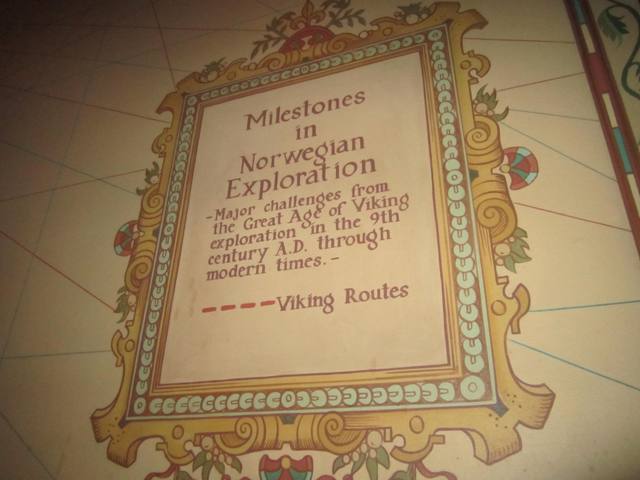 Milestones
in
Norwegian
Exploration
-Major challenges from
the Great Age of Viking
exploration in the 9th
century A.D. through
modern times.-
----Viking Routes